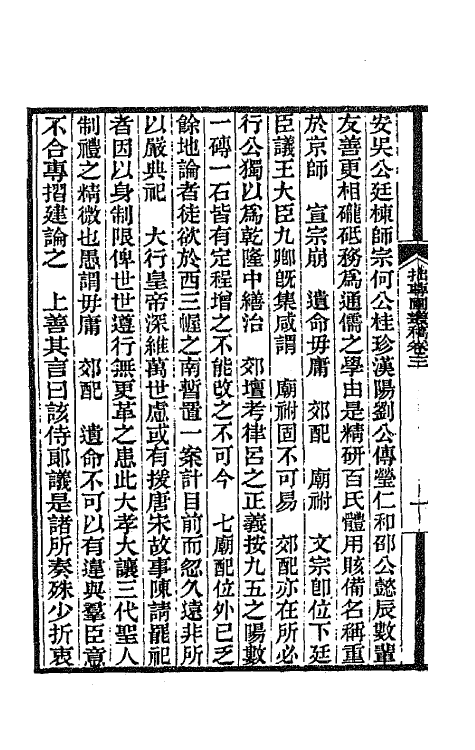 安吳公廷棟師宗何公桂珍漢陽劉公傳瑩仁和邵公懿辰數輩
友善更相礲砥務為通儒之學由是精研百氏體用賅備名稱重
於京師　宣宗崩　遺命毋庸　郊配　廟祔　文宗卽位下廷
臣議王大臣九卿旣集咸謂　廟祔固不可易　郊配亦在所必
行公獨以為乾隆中繕治　郊壇考律呂之正義按九五之陽數
一磚一石皆有定程增之不能改之不可今　七廟配位外已乏
餘地論者徒欲於西三幄之南暫置一案計目前而忽久遠非所
以嚴典祀　大行皇帝深維萬世慮或有援唐宋故事陳請罷祀
者因以身制限俾世世遵行無更革之患此大孝大讓三代聖人
制禮之精微也愚謂毋庸　郊配　遺命不可以有違與羣臣意
不合專摺建論之　上善其言曰該侍郎議是諸所奏殊少折衷
拙尊園叢稿卷三